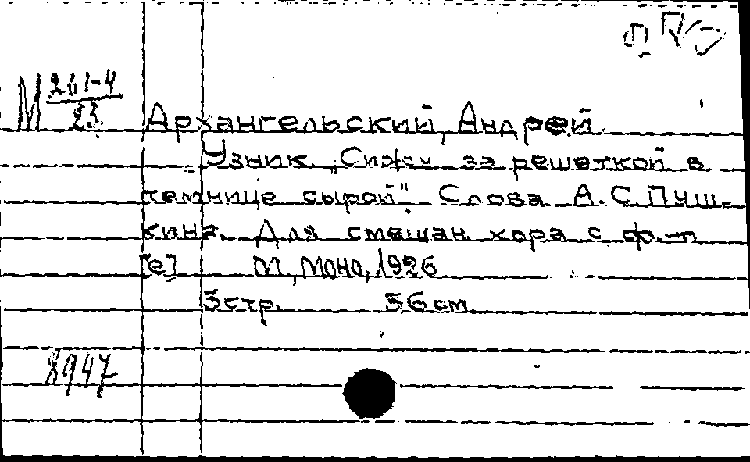 М 261-4
23
Архангельский, Андрей.
Узник. „Сижу за решеткой в
темнице сырой". Слова А.С. Пуш-
кина. Для смешан. хора с ф.-п
[е] М, Моно, 1926
3 стр. 36 см
8947